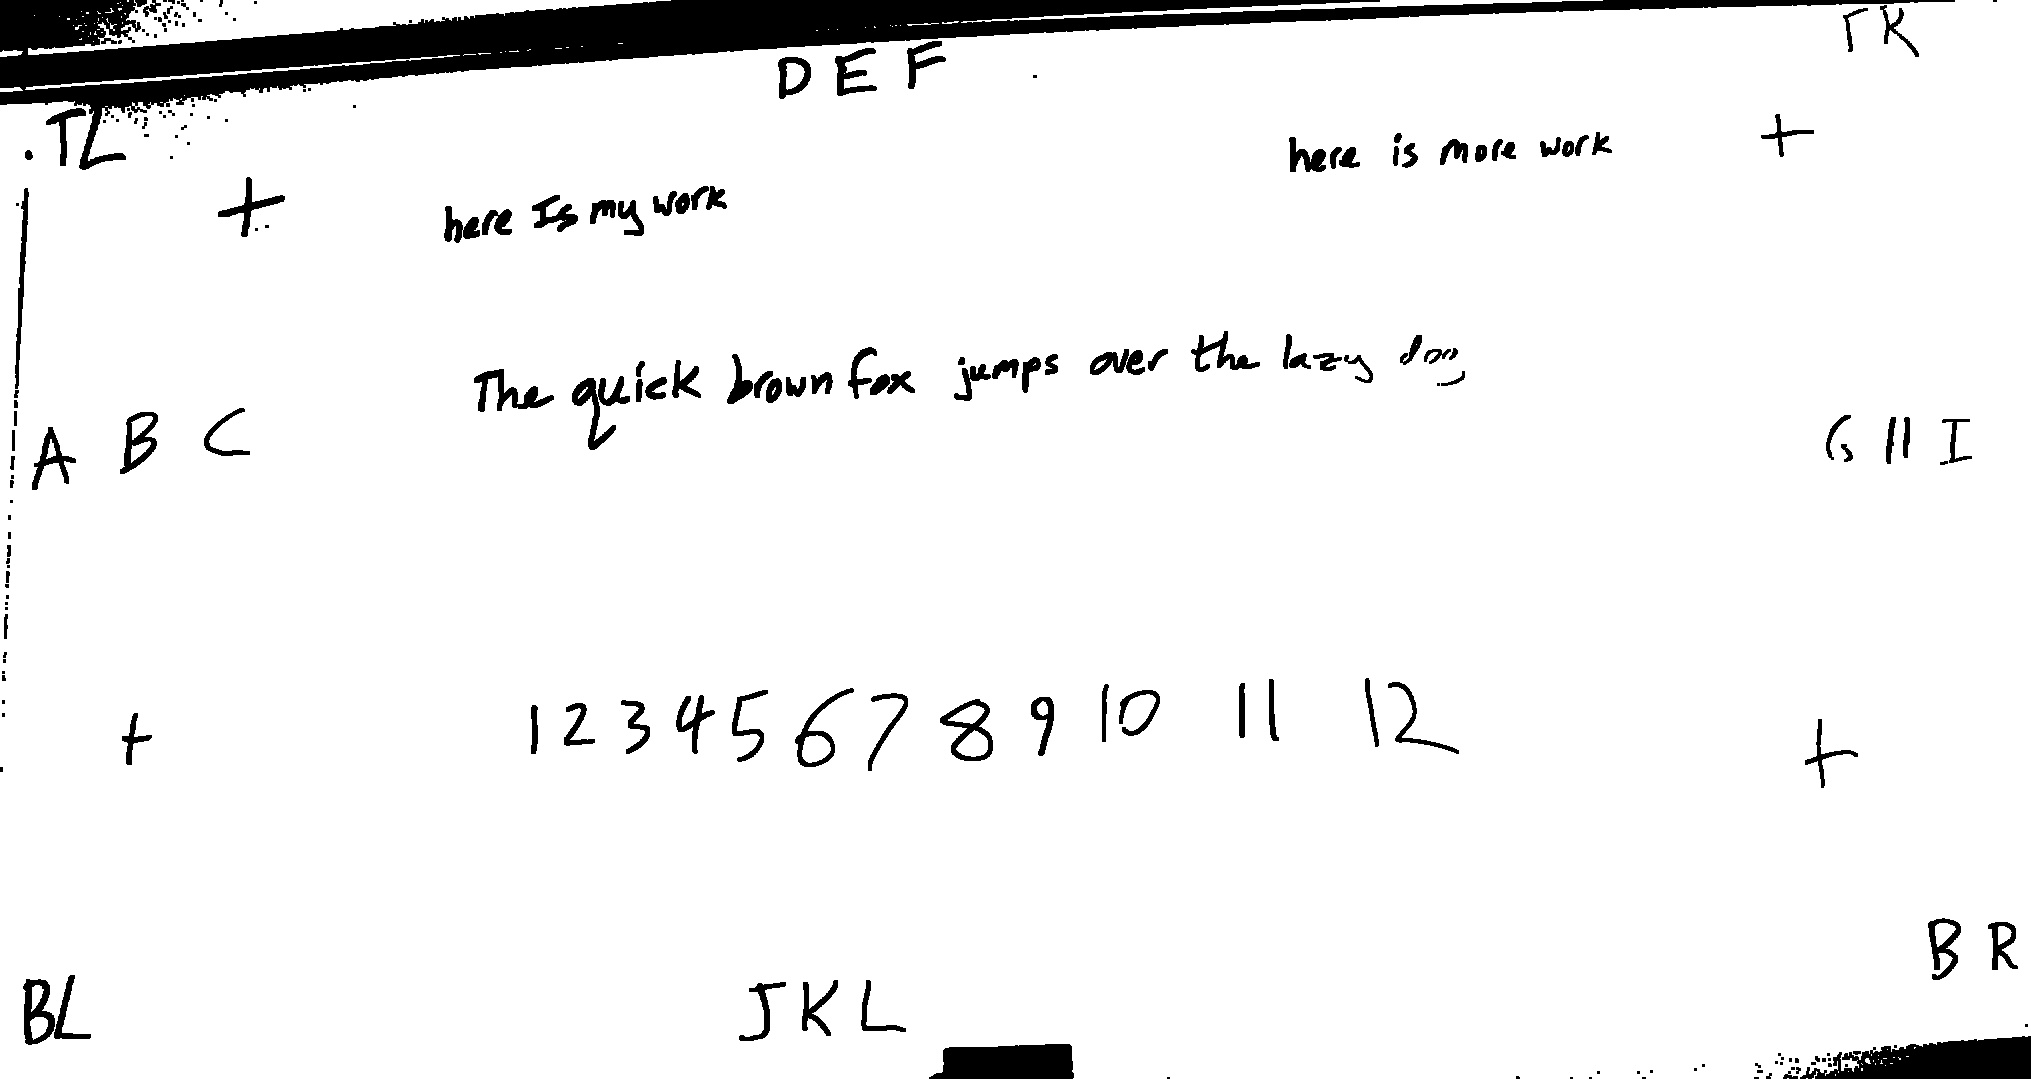 TR
D E F
TL
here is more work
+
+
here Is my work
The quick brown fox jumps over the lazy dog
A B C
G H I
+
1 2 3 4 5 6 7 8 9 10 11 12
+
B R
BL
J K L